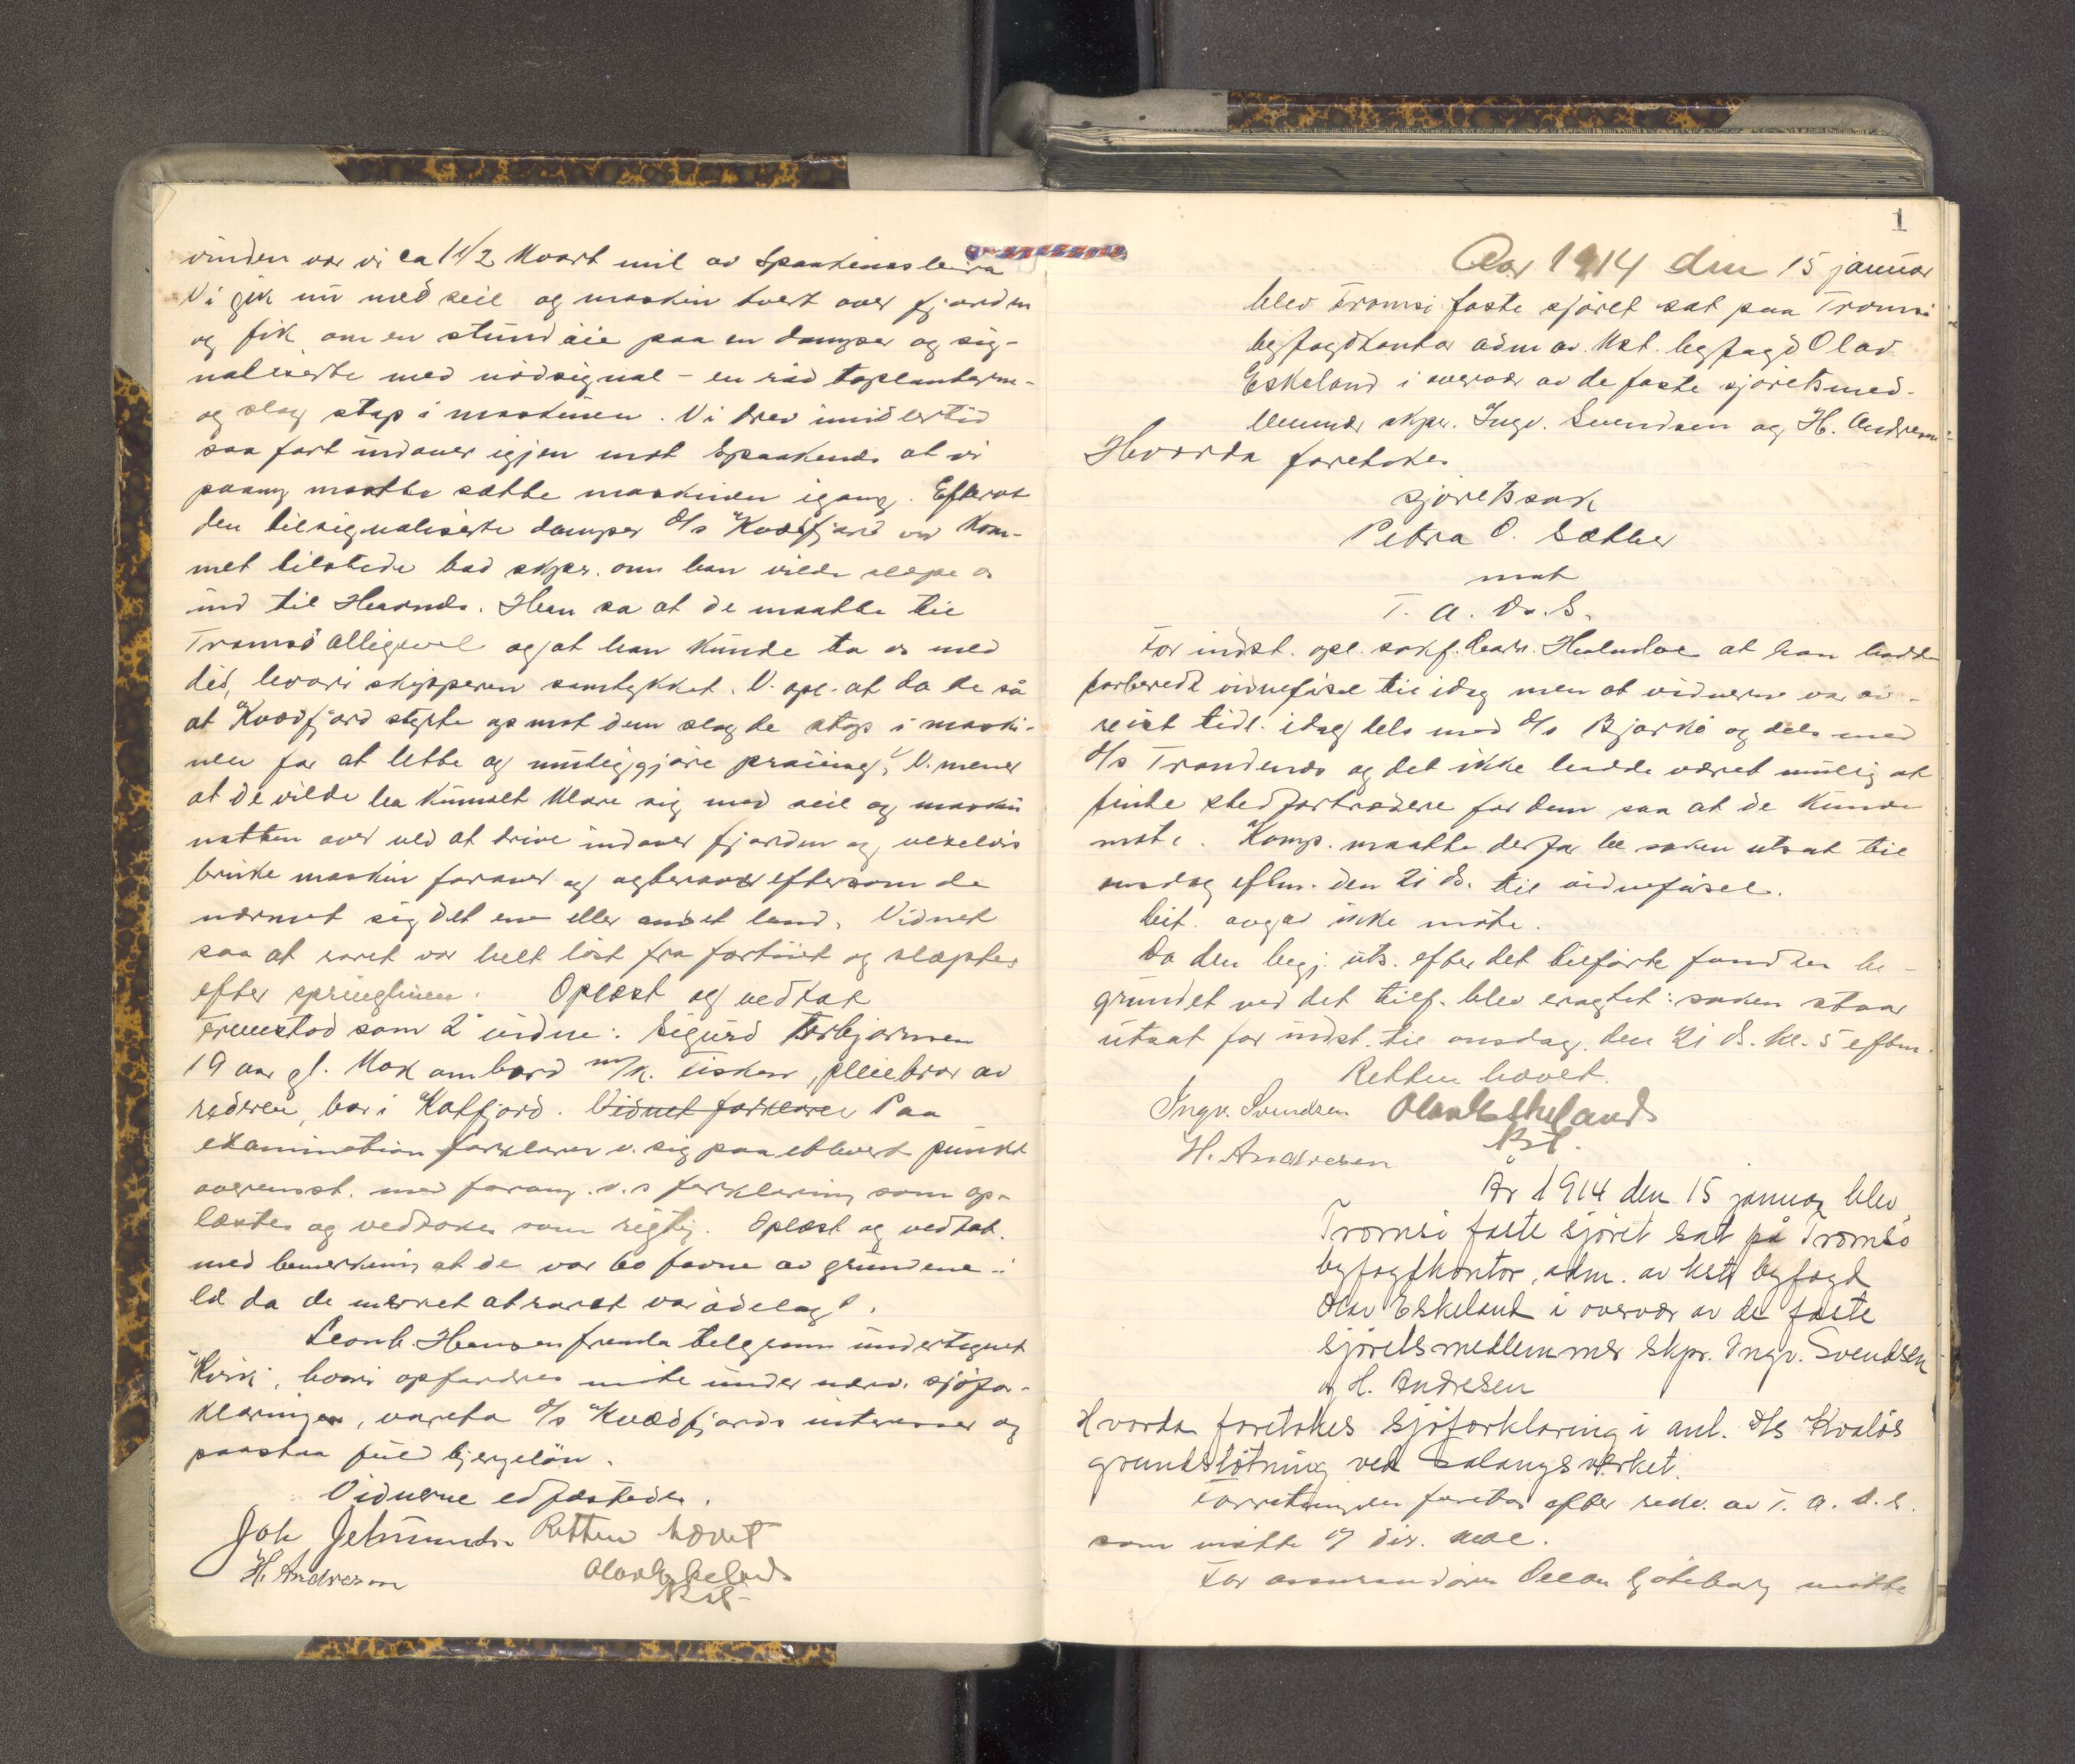 vinden var vi ca 1 1/2 kvart mil av Spaakenesleira
Vi gik nu med seil og maskin tvert over fjorden
og fik om en stund øie paa en damper og sig-
naliserte med nødsignal - en rød toplanterne -
og slog stop i maskinen. Vi drev imidlertid
saa fort indover igjen mot Spaakenes at vi
paany maatte sætte maskinen igang. Efterat
den tilsignaliserte damper d/s "Kvædfjord" var kom-
met tilstede bad skpr. om han vilde slæpe os
ind til Havnnes. Han sa at de maatte til
Tromsø alligevel og at han kunde ta os med
did, hvori skipperen samtykket. V. opl. at da de så
at "Kvædfjord styrte op mot dem slog de stop i maski-
nen for at lette og muliggjøre praiing, V. mener
at de vilde ha kunnet klare sig med seil og maskin
natten over ved at drive indover fjorden og vekselvis
bruke maskin forover og agterover eftersom de
nærmet sig det ene eller andet land. Vidnet
saa at roret var helt løst fra fartøiet og slæptes
efter springlinen. Oplæst og vedtat
Fremstod som 2° vidne: Sigurd Torbjørnsen
19 aar gl. kok ombord m/k. , pleiebror av
rederen, bor i Katfjord. Vidnet forklarer Paa
examination forklarer v. sig paa ethvert punkt
overensst. med foreg. v.s forklaring som op-
læstes og vedtokes som rigtig. Oplæst og vedtat.
med bemerkning at de var 60 favne av grundene i
ld da de merket at roret var ødelagt.
Leonh. Hansen fremla telegram undertegnet
"Kirii", hvori opfordres møte under nærv. sjøfor-
klaringen, vareta d/s "Kvædfjords interesser og
paastaa fuld bjergeløn.
Vidnerne edfæstedes.
Joh Jelmunds. Retten hævet
H. Andresen Olav Eskeland
Kst.
1
Aar 1914 den 15 januar
blev Tromsø faste sjøret sat paa Tromsø
byfogdkontor adm av kst. byfogd Olav
Eskeland i overvær av de faste sjøretsmed-
lemmer skpr. Ingv. Svendsen og H. Andresen
Hvorda foretokes
sjøretssak
Petra O. Sæther
mot
T. A. Ds. S.
For indst. opl. sakf. Holmboe at han hadde
forberedt vidneførsel til idag men at vidnerne var av-
reist tidl. idag dels med d/s Bjarkø og dels med
d/s Trondenes og det ikke hadde været mulig at
finde stedfortrædere for dem saa at de kunde
møte. Komp. maatte derfor be saken utsat til
onsdag eftm. den 21 ds. til vidneførsel.
Cit. avgav ikke møte.
Da den begj. uts. efter det tilførte fandtes be-
grundet ved det tilf. blev eragtet: saken staar
utsat for indst. til onsdag. den 21 ds. kl. 5 eftm.
Retten hævet.
Ingv. Svendsen Olav Eskeland
H. Andresen Kst.
År 1914 den 15 januar blev
Tromsø faste sjøret sat på Tromsø
byfogdkontor, adm. av kst byfogd
Olav Eskeland i overvær av de faste
sjøretsmedlemmer skpr. Ingv. Svendsen
og H. Andresen
Hvorda foretokes sjøforklaring i anl. d/s Kvaløs
grundstøtning ved Salangsverket.
Forretningen foretas efter rekv. av T. A. D. S.
som møtte v/ dir.
For assurandøren Ocean Gøteborg møtte